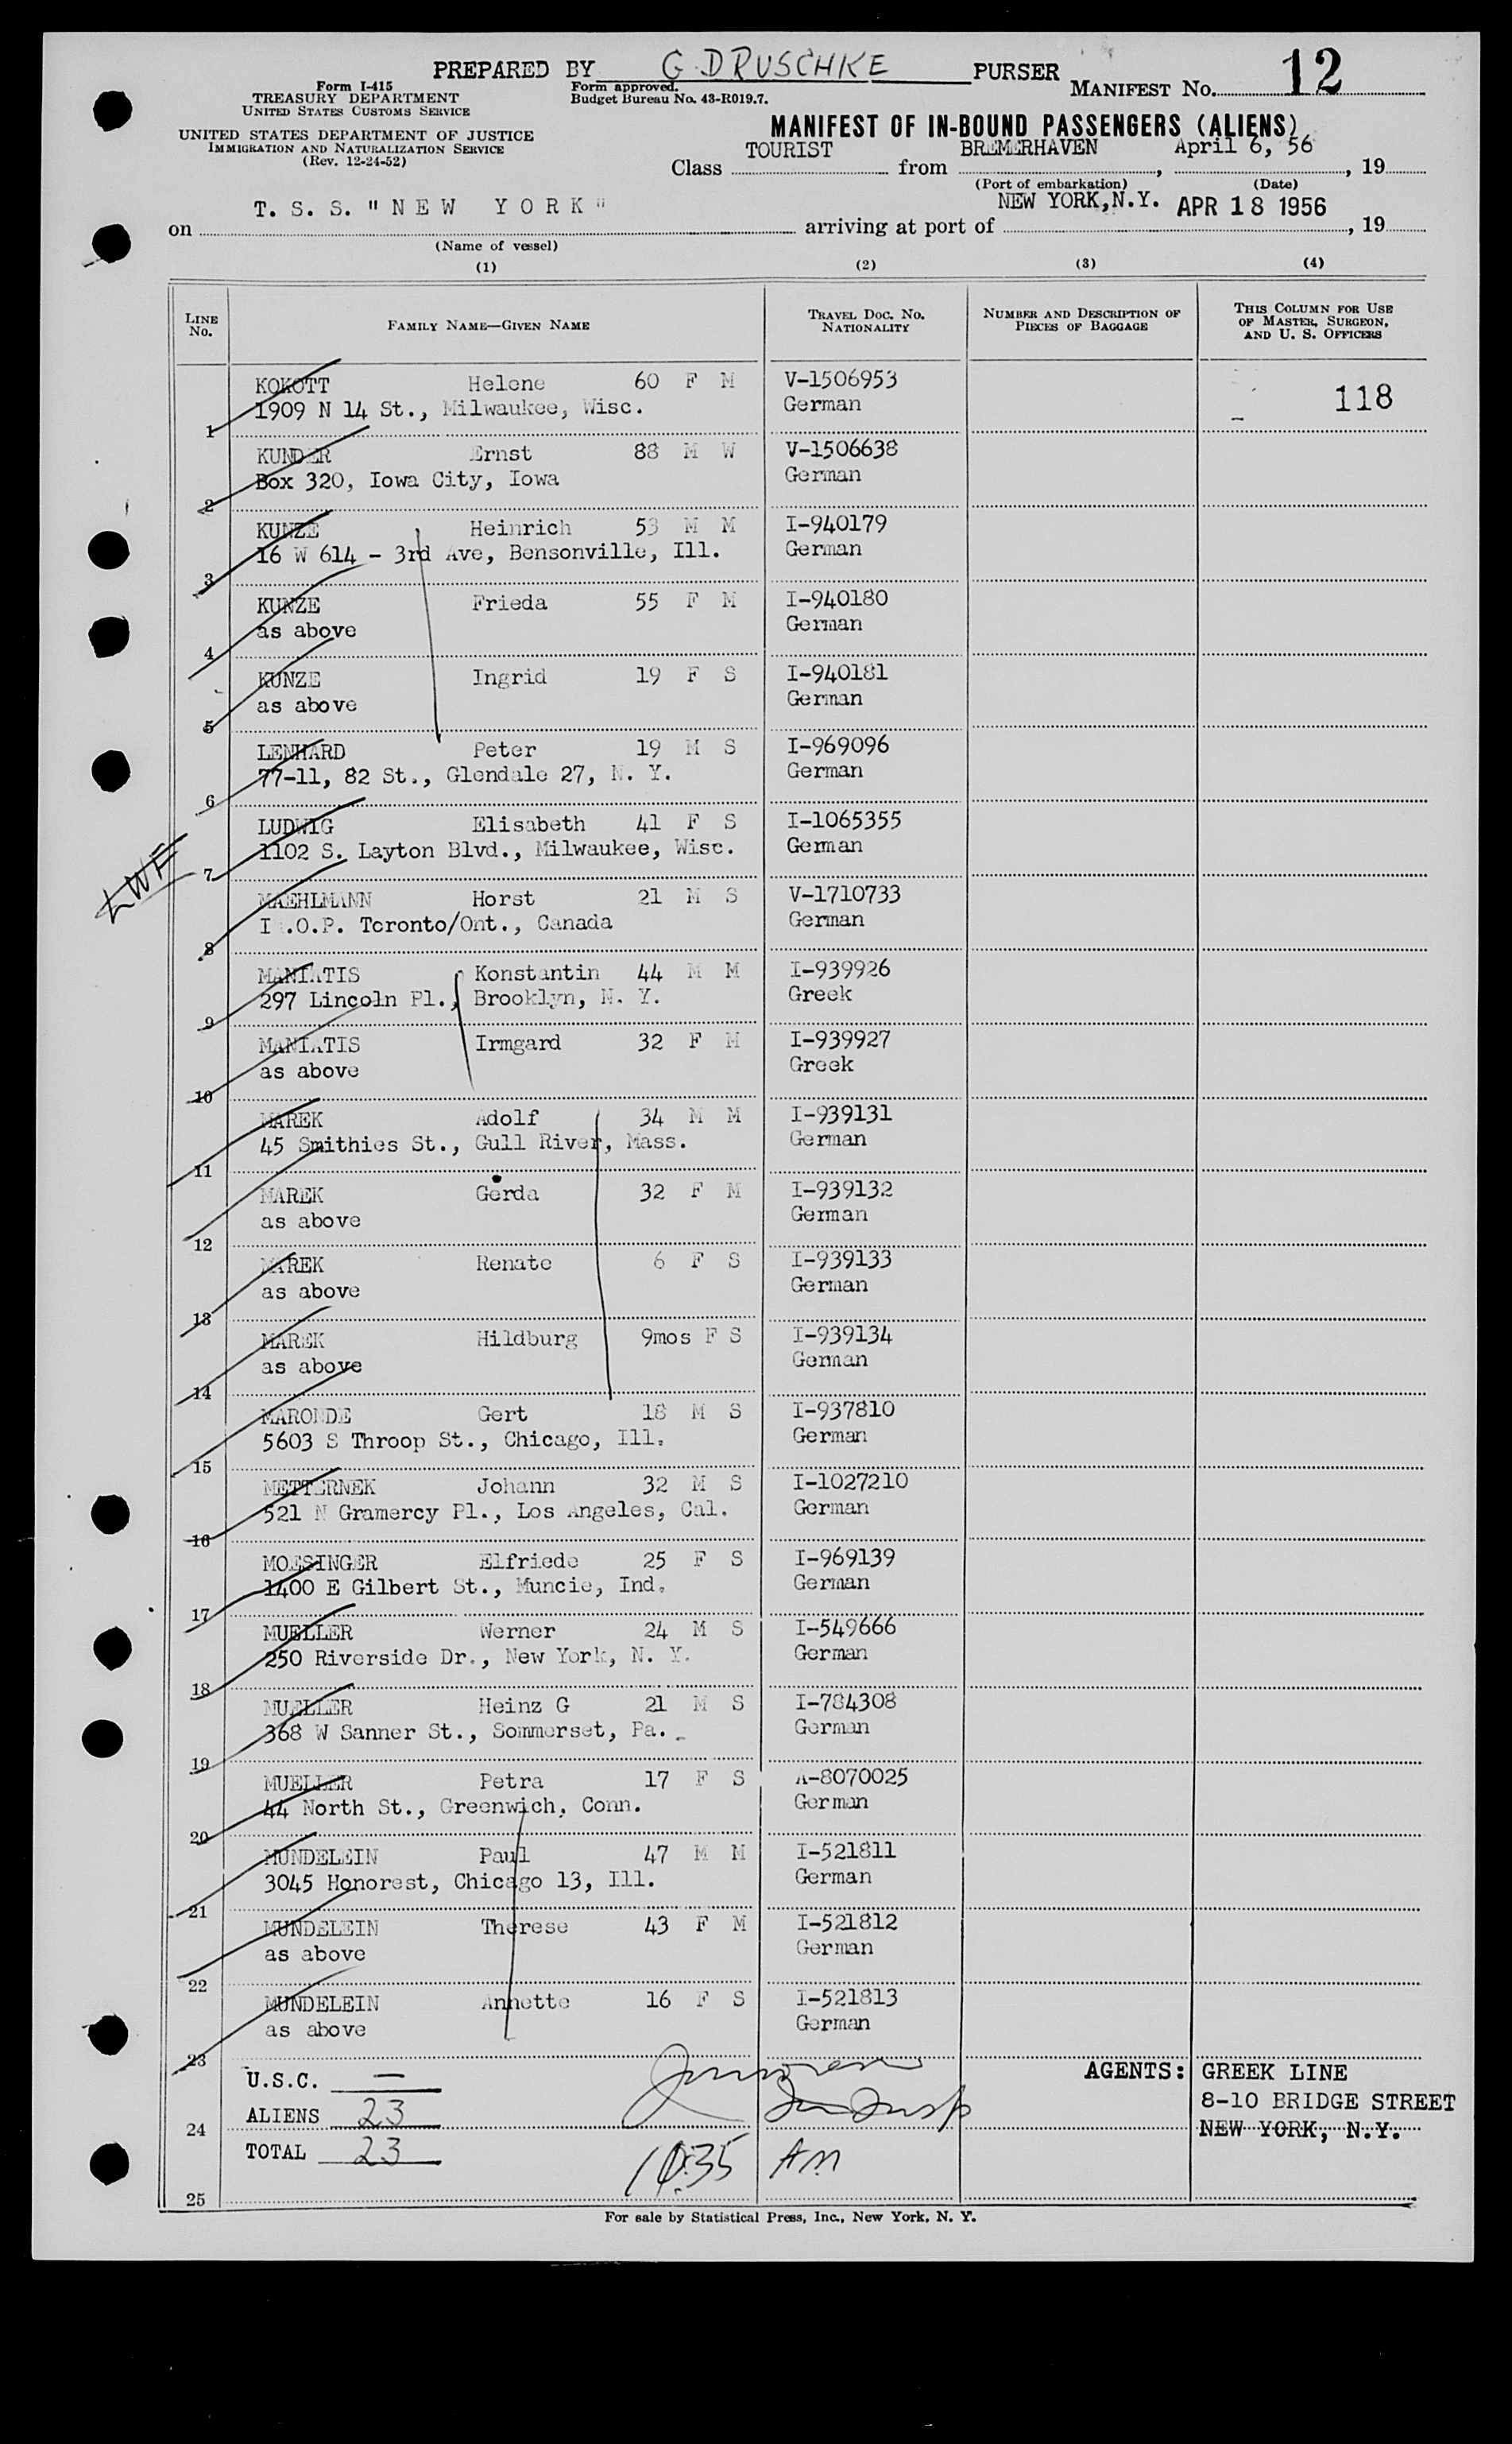 PREPARED BY G DRUSCHKE PURSER
Form I-415
TREASURY DEPARTMENT
UNITED STATES CUSTOMS SERVICE
Form approved.
Budget Bureau No. 43-R019.7.
MANIFEST NO. 12
UNITED STATES DEPARTMENT OF JUSTICE
IMMIGRATION AND NATURALIZATION SERVICE
(Rev. 12-24-52)
MANIFEST OF IN-BOUND PASSENGERS (ALIENS)
Class TOURIST from BREMERHAVEN, April 6, 56, 19
(Port of embarkation) (Date)
on T. S. S. "NEW YORK" arriving at port of NEW YORK, N.Y. APR 18 1956, 19
(Name of vessel)
(1) (2) (3) (4)
LINE NO. FAMILY NAME—GIVEN NAME TRAVEL DOC. NO. NATIONALITY NUMBER AND DESCRIPTION OF PIECES OF BAGGAGE THIS COLUMN FOR USE OF MASTER, SURGEON, AND U. S. OFFICERS
KOKOTT Helene 60 F M V-1506953 118
1 1909 N 14 St., Milwaukee, Wisc. German
KUNDER Ernst 88 M W V-1506638
2 Box 320, Iowa City, Iowa German
KUNZE Heinrich 53 M M I-940179
3 16 W 614 - 3rd Ave, Bensonville, Ill. German
KUNZE Frieda 55 F M I-940180
4 as above German
KUNZE Ingrid 19 F S I-940181
5 as above German
LENHARD Peter 19 M S I-969096
6 77-11, 82 St., Glendale 27, N. Y. German
LUDWIG Elisabeth 41 F S I-1065355
7 1102 S. Layton Blvd., Milwaukee, Wisc. German
LWF
MAEHLMANN Horst 21 M S V-1710733
8 .O.P. Toronto/Ont., Canada German
MANIATIS Konstantin 44 M M I-939926
9 297 Lincoln Pl., Brooklyn, N. Y. Greek
MANIATIS Irmgard 32 F M I-939927
10 as above Greek
MAREK Adolf 34 M M I-939131
11 45 Smithies St., Gull River, Mass. German
MAREK Gerda 32 F M I-939132
12 as above German
MAREK Renate 6 F S I-939133
13 as above German
MAREK Hildburg 9mos F S I-939134
14 as above German
MARONDE Gert 18 M S I-937810
15 5603 S Throop St., Chicago, Ill. German
METTERNEK Johann 32 M S I-1027210
16 521 N Gramercy Pl., Los Angeles, Cal. German
MOESINGER Elfriede 25 F S I-969139
17 1400 E Gilbert St., Muncie, Ind. German
MUELLER Werner 24 M S I-549666
18 250 Riverside Dr., New York, N. Y. German
MUELLER Heinz G 21 M S I-784308
19 368 W Sanner St., Sommerset, Pa. German
MUELLER Petra 17 F S A-8070025
20 44 North St., Greenwich, Conn. German
MUNDELEIN Paul 47 M M I-521811
21 3045 Honorest, Chicago 13, Ill. German
MUNDELEIN Therese 43 F M I-521812
22 as above German
MUNDELEIN Annette 16 F S I-521813
23 as above German
U.S.C. —
AGENTS: GREEK LINE
ALIENS 23
8-10 BRIDGE STREET
24
NEW YORK, N.Y.
TOTAL 23
10:35 AM
25
For sale by Statistical Press, Inc., New York, N. Y.